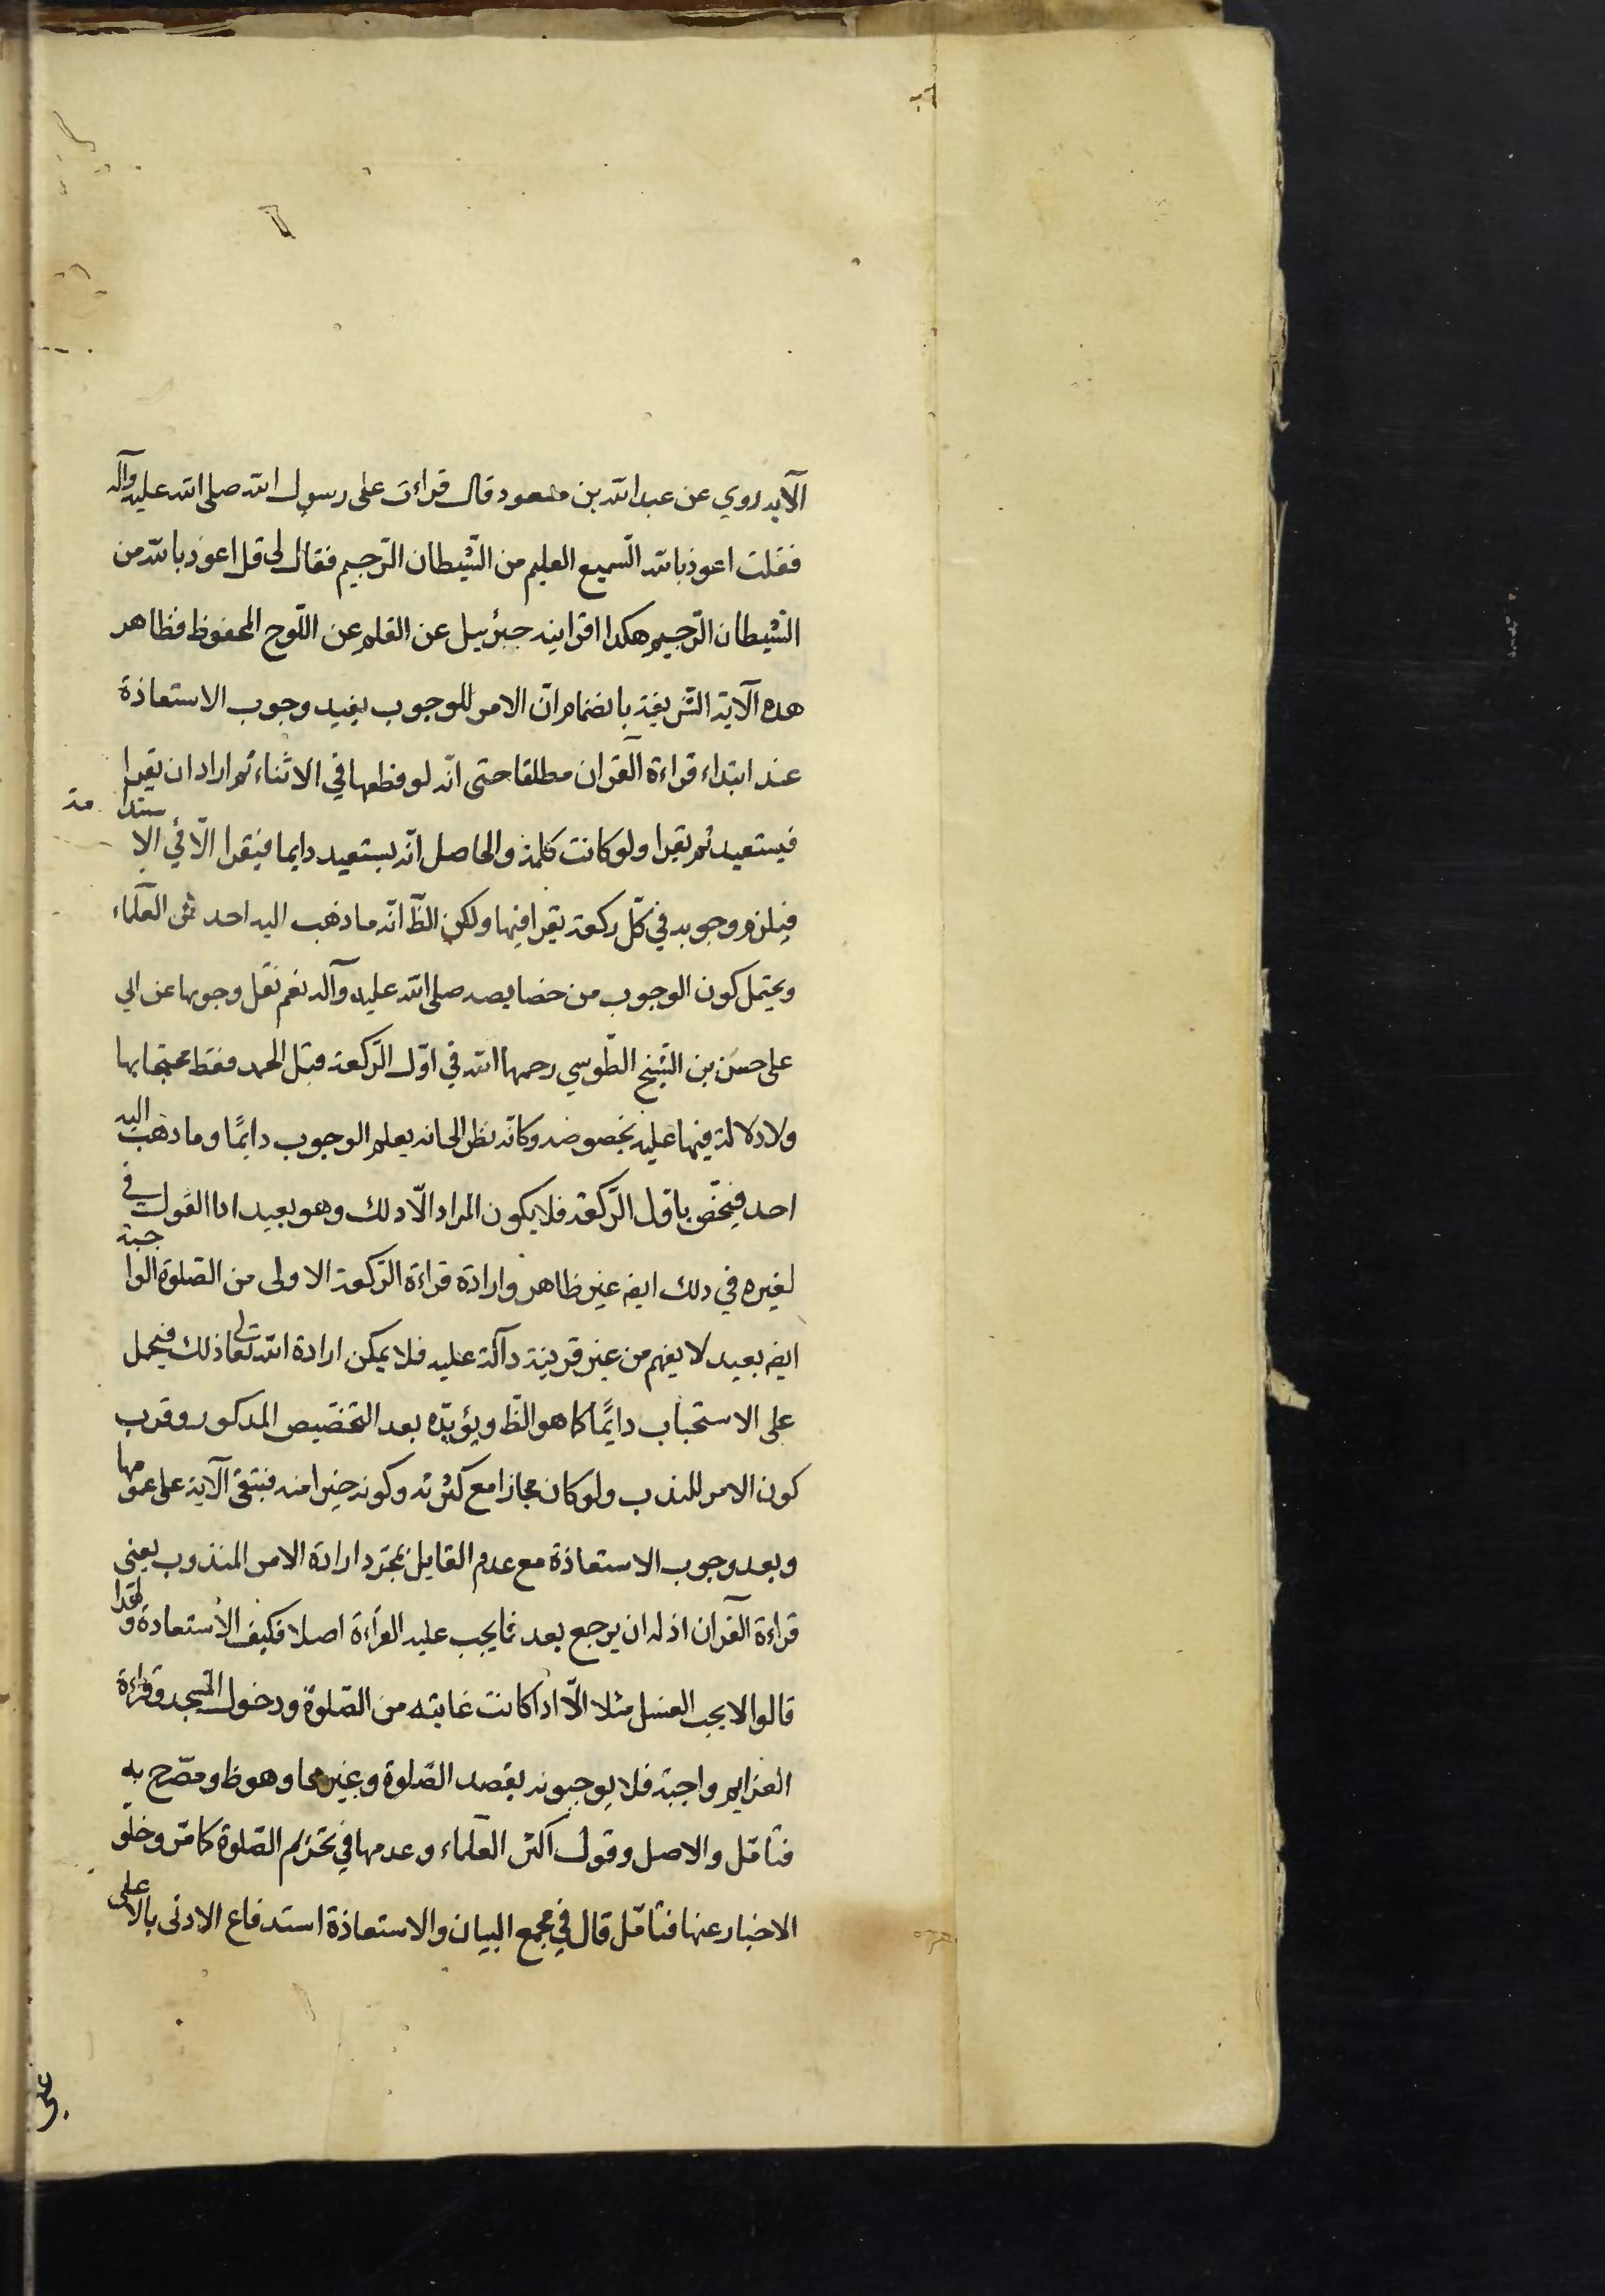 الآية روي عن عبد الله بن مسعود قال قراءت على رسول الله صلى الله عليه وآله
فقلت اعوذ بالله السّميع العليم من الشّيطان الرّجيم فقال لي قل اعوذ بالله من
الشّيطان الرّجيم هكذا اقرانيه جبرئيل عن القلم عن اللّوح المحفوظ فظاهر
هذه الآية الشّريفة بانضمام انّ الامر للوجوب يفيد وجوب الاستعاذة
عند ابتداء قراءة القران مطلقا حتى انّه لو قطعها في الاثناء ثم اراد ان يقرا
فيستعيذ ثم يقرا ولو كانت كلمة والحاصل انّه يستعيذ دايما فيقرا الّا في الابتداء
فيلزم وجوبه في كلّ ركعة يقرا فيها ولكن الظّ انّه ما ذهب اليه احد من العلماء
ويحتمل كون الوجوب من خصايصه صلى الله عليه وآله نعم نقل وجوبها عن ابي
على حسن بن الشّيخ الطّوسي رحمهما الله في اوّل الرّكعة قبل الحمد فقط محتجّا بها
ولا دلالة فيها عليه بخصوصه وكانّه نظر الى انه يعلم الوجوب دايمًا وما ذهب اليه
احد فيخصّ باوّل الرّكعة فلا يكون المراد الّا ذلك وهو بعيد اذا القول في
لغيره في ذلك ايضه غير ظاهر وارادة قراءة الرّكعة الاولى من الصّلوة الواجبة
ايضه بعيد لا يفهم من غير قرينة دالّة عليه فلا يمكن ارادة الله تعالى ذلك فيحمل
على الاستحباب دايمًا كما هو الظّ ويؤيّده بعد التخصيص المذكور وقرب
كون الامر للندب ولو كان مجازا مع كثرته وكونه خيرا منه فبتقى الآية على عمومها
وبعد وجوب الاستعاذة مع عدم القايل بمجرّد ارادة الامر المندوب يعني
قراءة القران اذ له ان يرجع بعد فما يجب عليه القراءة اصلا فكيف الاستعاذة ولهذا
قالوا لا يجب الغسل مثلا الّا اذا كانت غايته من الصّلوة ودخول المسجد وقراءة
العزايم واجبة فلا يوجبونه بقصد الصّلوة وغيرها وهو ظ ومصّرح به
فتامّل والاصل وقول اكثر العلماء وعدمها في تحريم الصّلوة كما مّر وخلّو
الاخبار عنها فتامّل قال في مجمع البيان والاستعاذة استدفاع الادنى بالاعلى